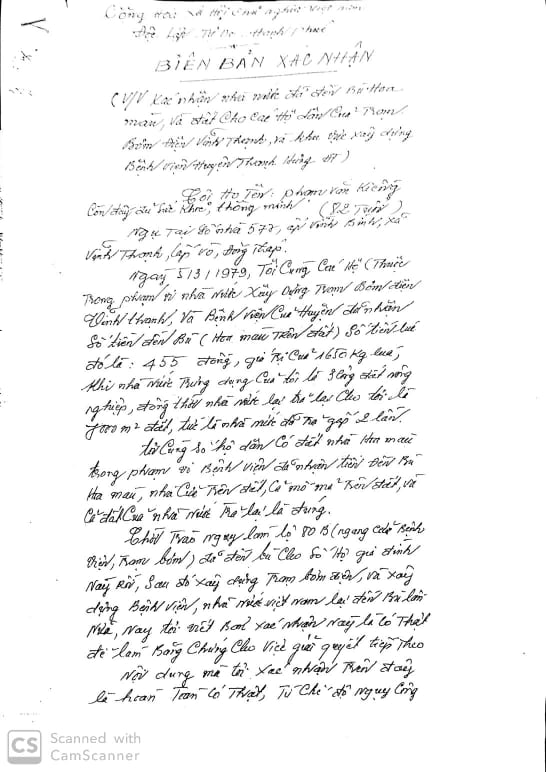 Cộng hòa Xã Hội Chủ nghĩa Việt nam
Độc Lập Tự Do Hạnh Phúc
BIÊN BẢN XÁC NHẬN
(V/V Xác nhận nhà nước đã đền Bù Hoa
màu, Và đất Cho Các Hộ dân Của Trạm
Bơm Điện Vĩnh Thạnh, và khu vực xây dựng
Bệnh Viện Huyện Thạnh Hưng ĐT)
Tôi Họ Tên: phạm văn Kiêng
Còn đầy đủ sức khỏe, thông minh (82 Tuổi)
Ngụ Tại số nhà 577, ấp Vĩnh Bình, Xã
Vĩnh Thạnh, Lấp Vò, Đồng Tháp.
Ngày 5/3/1979, Tôi Cùng Các Hộ (Thuộc
Trong phạm vi nhà Nước Xây Dựng Trạm Bơm điện
Vĩnh thạnh, Và Bệnh Viện Của Huyện đã nhận
Số tiền đền Bù (Hoa màu Trên đất) Số tiền lúc
đó là: 455 đồng, giá trị Của 1650 Kg lúa,
Khi nhà Nước Trưng dụng Của tôi là 3 Công đất nông
nghiệp, đồng thời nhà nước lại trả lại Cho tôi là
7000 m² đất, tức là nhà nước đã Trả gấp 2 lần.
tôi Cùng số hộ dân Có đất nhà Hoa màu
trong phạm vi Bệnh Viện đã nhận tiền Đền Bù
Hoa màu, nhà Cửa Trên đất, Cả mồ mả Trên đất, và
Cả đất Của nhà Nước Trả lại là đúng.
Thời Trào ngụy làm lộ 80 B (ngang Bệnh
Viện, Trạm bơm) đã đền bù Cho Số Hộ gia đình
Này Rồi, Sau đó xây dựng Trạm bơm điện, và Xây
dựng Bệnh Viện, nhà Nước việt Nam lại đền Bù lần
Nữa, Nay tôi viết Bản xác nhận Này là Có Thật
để làm Bằng Chứng Cho Việc giải quyết tiếp Theo
Nội dung mà tôi xác nhận Trên đây
là hoàn Toàn Có Thật, Từ Chế độ Ngụy Cũng
CS Scanned with
CamScanner